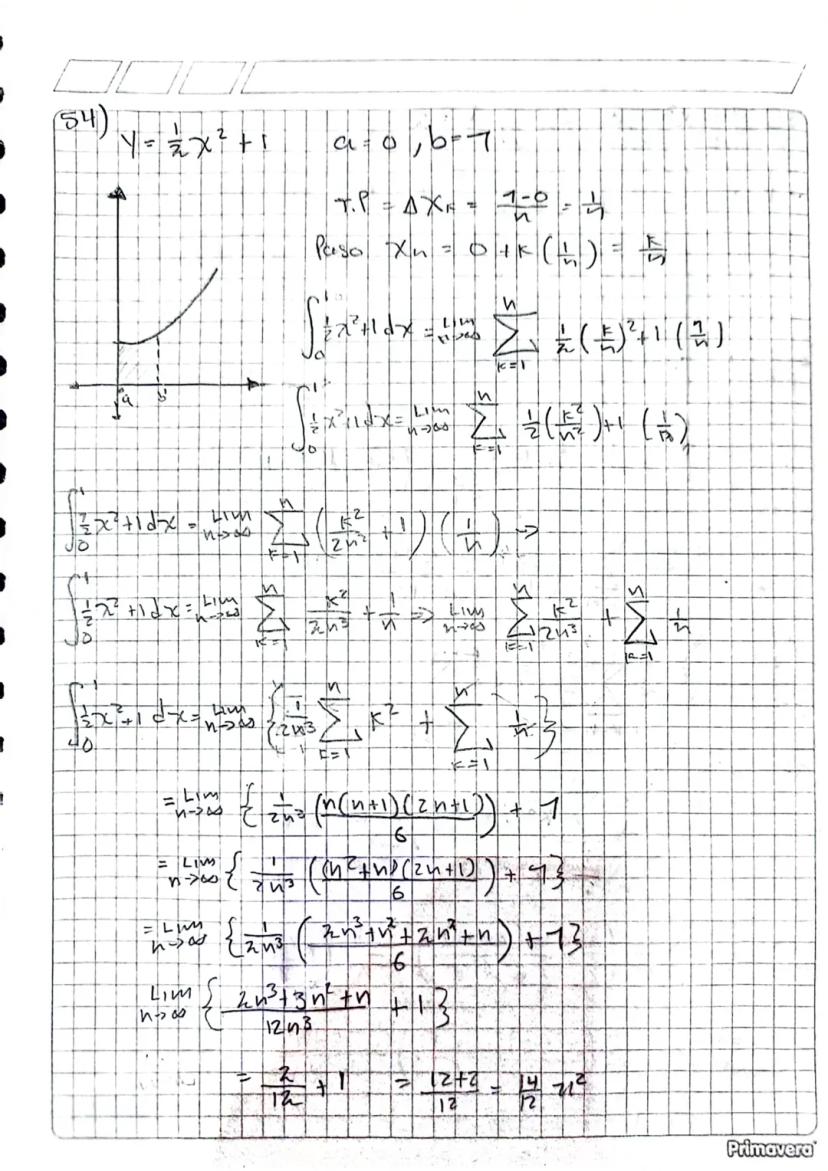 54)
y = 1/2 x² + 1   a = 0 , b = 1
T.P = Δ Xₖ = (1-0)/n = 1/n
Paso Xₙ = 0 + k (1/n) = k/n
∫₀¹ 1/2 x² + 1 dx = Lim n→∞ ∑ₖ₌₁ⁿ 1/2 (k/n)² + 1 (1/n)
a b
∫₀¹ 1/2 x² + 1 dx = Lim n→∞ ∑ₖ₌₁ⁿ 1/2 (k²/n²) + 1 (1/n)
∫₀¹ 1/2 x² + 1 dx = Lim n→∞ ∑ₖ₌₁ⁿ (k²/2n² + 1) (1/n) →
∫₀¹ 1/2 x² + 1 dx = Lim n→∞ ∑ₖ₌₁ⁿ k²/2n³ + 1/n ⇒ Lim n→∞ ∑ₖ₌₁ⁿ k²/2n³ + ∑ₖ₌₁ⁿ 1/n
∫₀¹ 1/2 x² + 1 dx = Lim n→∞ { 1/2n³ ∑ₖ₌₁ⁿ k² + ∑ₖ₌₁ⁿ 1/n }
= Lim n→∞ { 1/2n³ (n(n+1)(2n+1)/6) + 1
= Lim n→∞ { 1/2n³ ((n²+n)(2n+1)/6) + 1 }
= Lim n→∞ { 1/2n³ ((2n³+n²+2n²+n)/6) + 1 }
Lim n→∞ { (2n³+3n²+n)/12n³ + 1 }
= 2/12 + 1 = (12+2)/12 = 14/12 u²
Primavera